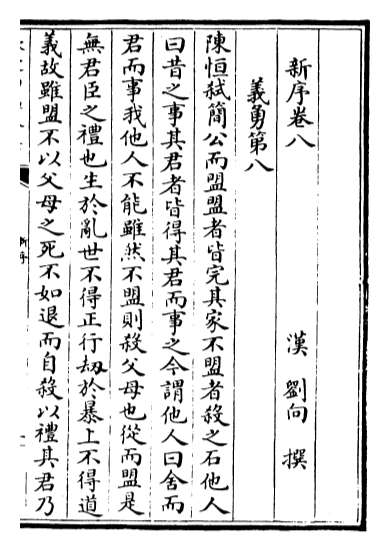 新序卷八
漢 劉向 撰
義勇第八
陳恒弒簡公而盟盟者皆完其家不盟者殺之石他人
曰昔之事其君者皆得其君而事之今謂他人曰舍而
君而事我他人不能雖然不盟則殺父母也從而盟是
無君臣之禮也生於亂世不得正行劫於暴上不得道
義故雖盟不以父母之死不如退而自殺以禮其君乃
新序